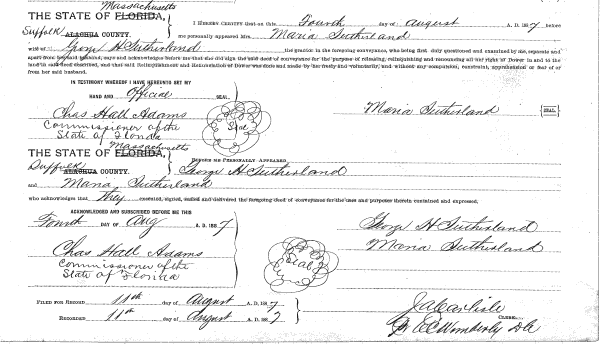 Massachusetts
THE STATE OF FLORIDA,
Suffolk ALACHUA COUNTY.
I HEREBY CERTIFY that on this Fourth day of August A. D. 1887 before
me personally appeared Mrs. Maria Sutherland
wife of George H Sutherland the grantor in the foregoing conveyance, who being first duly questioned and examined by me, separate and
apart from her said husband, says and acknowledges before me that she did sign the said deed of conveyance for the purpose of releasing, relinquishing and renouncing all her right of Dower in and to the
land in said deed described, and that said Relinquishment and Renunciation of Dower was done and made by her freely and voluntarily, and without any compulsion, constraint, apprehension or fear of or
from her said husband.
IN TESTIMONY WHEREOF I HAVE HEREUNTO SET MY
HAND AND Official SEAL.
Chas Hall Adams
Commissioner of the
State of Florida
Seal
Maria Sutherland SEAL
Massachusetts
THE STATE OF FLORIDA,
Suffolk ALACHUA COUNTY.
BEFORE ME PERSONALLY APPEARED George H Sutherland
and Maria Sutherland
who acknowledges that they executed, signed, sealed and delivered the foregoing deed of conveyance for the uses and purposes therein contained and expressed.
ACKNOWLEDGED AND SUBSCRIBED BEFORE ME THIS
Fourth DAY OF Aug A. D. 1887
George H Sutherland
Maria Sutherland
Chas Hall Adams
Commissioner of the
State of Florida
FILED FOR RECORD 11th day of August A. D. 1887
RECORDED 11th day of August A. D. 1887
J A Carlisle
CLERK.
E C Wimberly DC